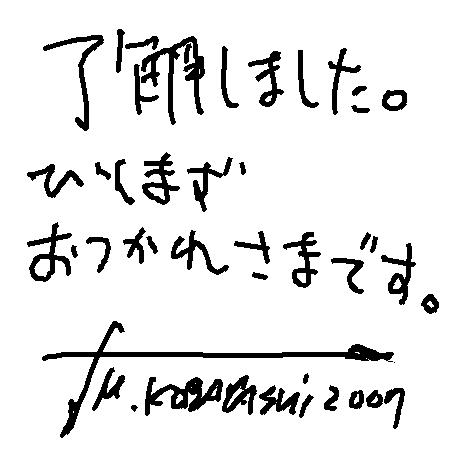 了解しました。
ひとまず
おつかれさまです。
M. KOBAYASHI 2007